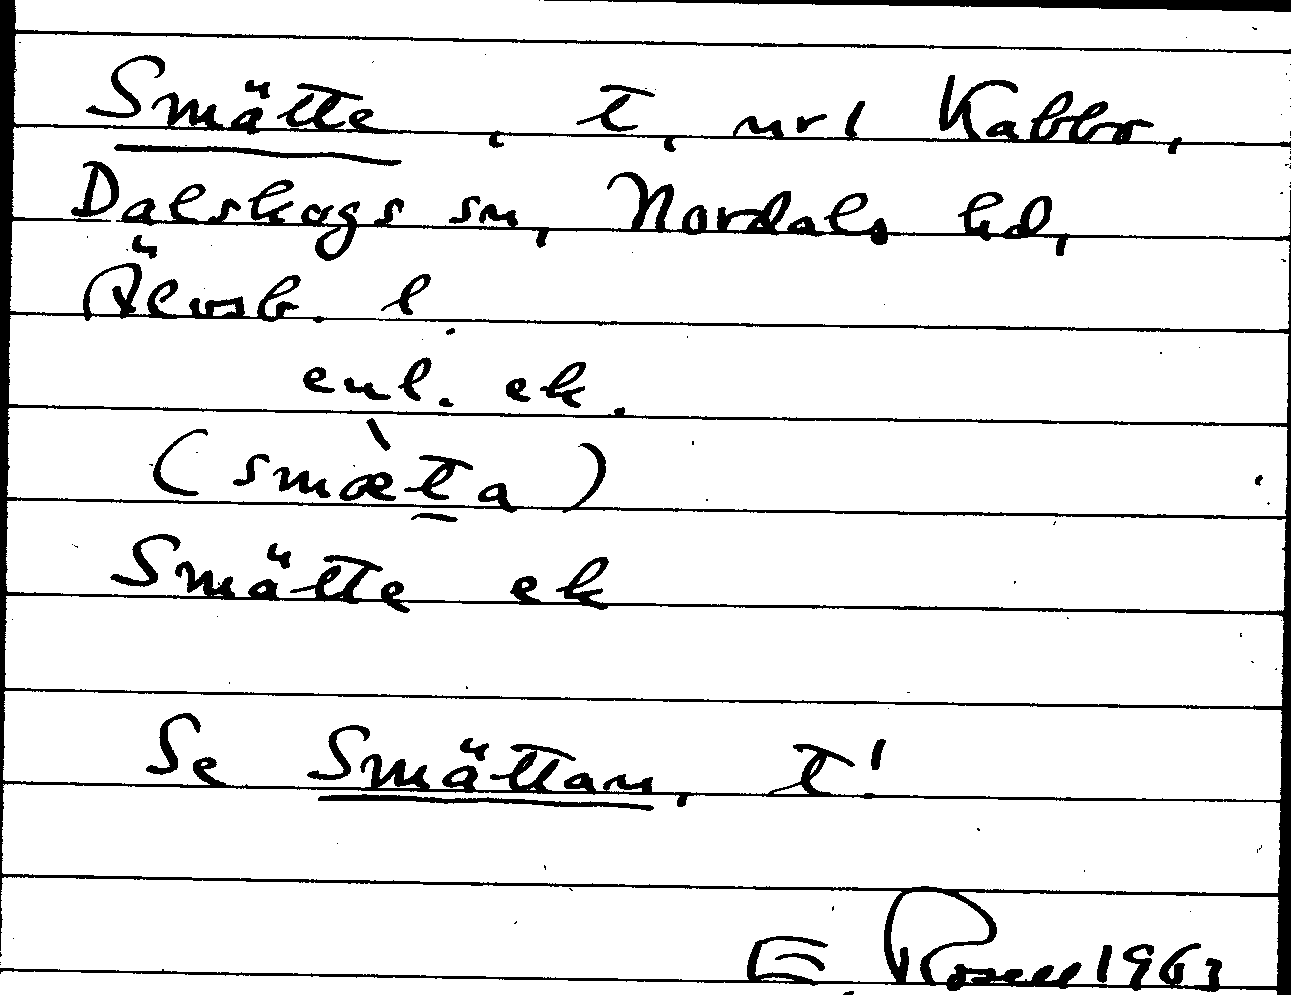 Smätte, t, nr 1 Kabbo,
Dalskogs sn, Nordals hd,
Älvsb. l.
enl. ek.
(smæ̀ta)
Smätte ek
Se Smättan, t!
E. Rosell 1963